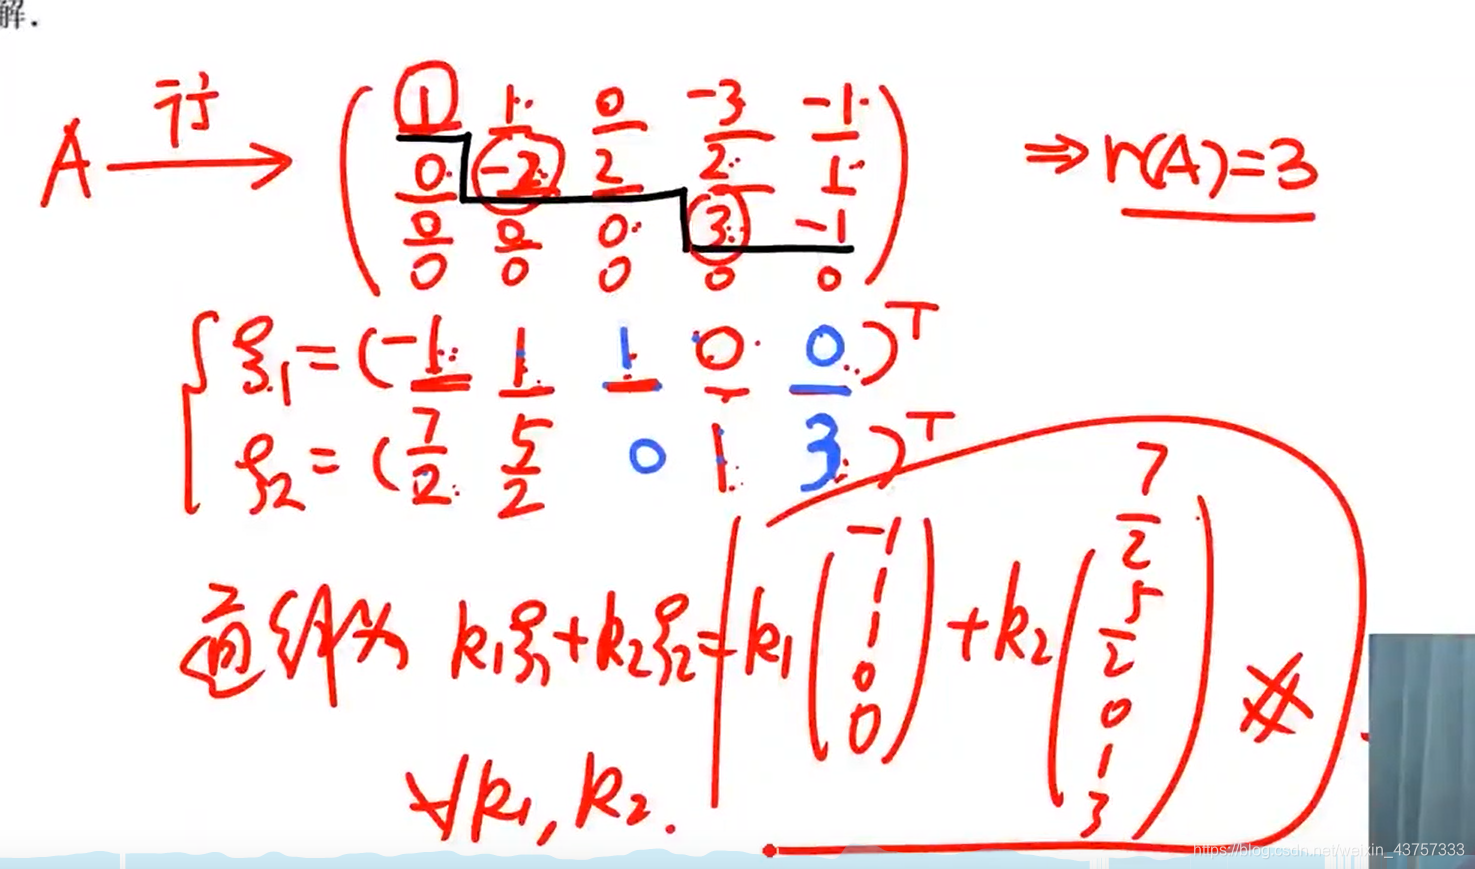 解.
A 行→ ( 1 1 0 -3 -1 ⇒ r(A)=3
0 -2 2 2 1
0 0 0 3 -1
0 0 0 0 0 )
{ ξ₁ = (-1 1 1 0 0)ᵀ
ξ₂ = (7/2 5/2 0 1 3)ᵀ
通解为 k₁ξ₁+k₂ξ₂= k₁ ( -1 1 1 0 0 ) + k₂ ( 7/2 5/2 0 1 3 )
∀k₁, k₂.
https://blog.csdn.net/weixin_43757333